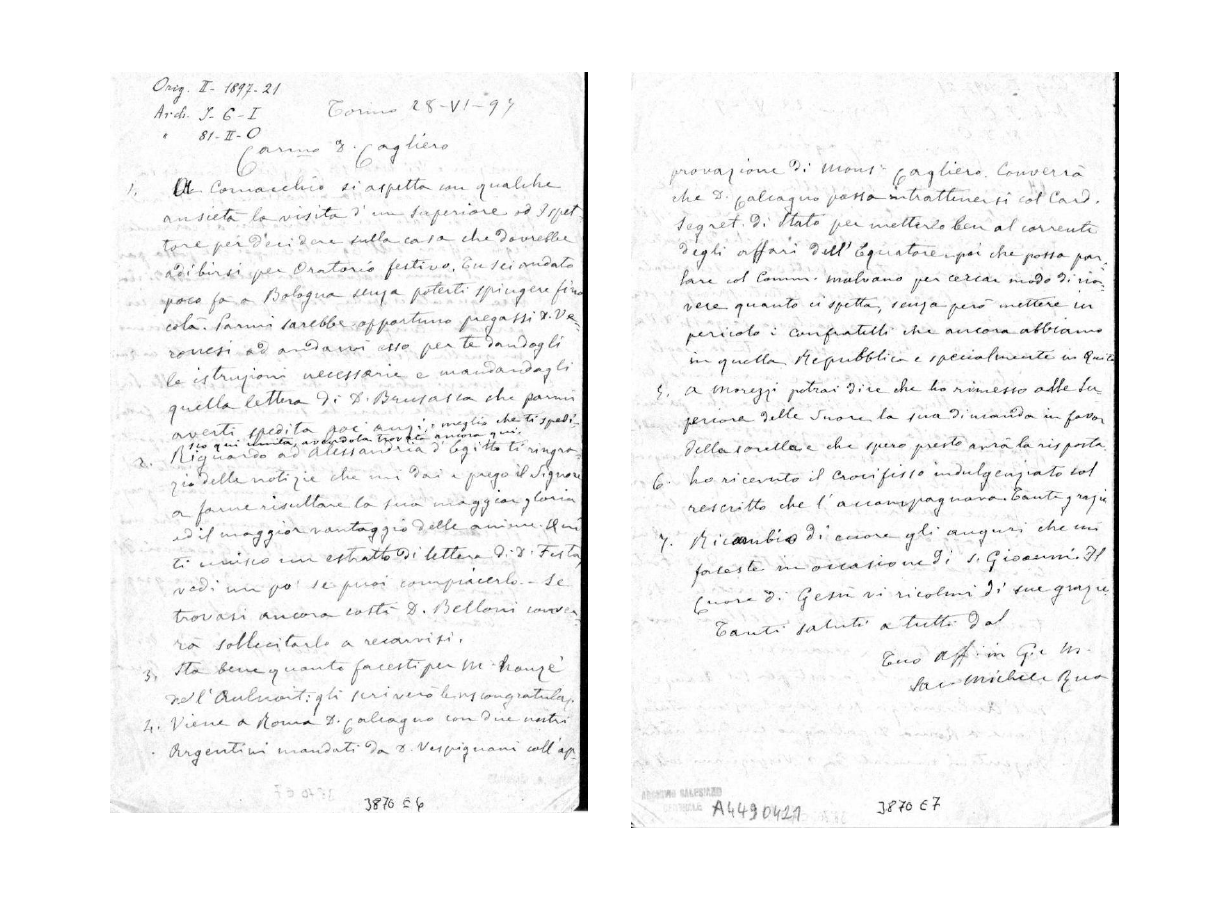 Orig. II - 1897-21
Arch. J - G - I
" 81-II-O
Torino 28-VI-97
Carmo D. Cagliero
1. A Comacchio si aspetta con qualche
ansietà la visita d'un superiore od Ispet-
tore per decidere sulla casa che dovrebbe
adibirsi per Oratorio festivo. Tu sei andato
poco fa a Bologna senza poterti spingere fino
colà. Parmi sarebbe opportuno pregassi D. Ve-
ronesi ad andarvi esso per te dandogli
le istruzioni necessarie e mandandogli
quella lettera di D. Brusasca che parmi
averti spedita poc'anzi, meglio che ti spedi-
sco qui unita, avendola trovata ancora qui.
2. Riguardo ad Alessandria d'Egitto ti ringra-
zio delle notizie che mi dai e prego il Signore
a farne risultare la sua maggior gloria
ed il maggior vantaggio delle anime. Qui
ti unisco un estratto di lettera di D. Festa,
vedi un po' se puoi compiacerlo. - Se
trovasi ancora costì D. Belloni conver-
rà sollecitarlo a recarvisi.
3. Sta bene quanto facesti per M.
dell' gli scriverò congratulaz.
4. Viene a Roma D. Calcagno con due nostri
Argentini mandati da D. Vespignani coll'ap-
3870 E6
provazione di Mons. Cagliero. Converrà
che D. Calcagno possa intrattenersi col Card.
Segret. di Stato per metterlo ben al corrente
degli affari dell'Equatore, poi che possa par-
lare col Comm. Malvano per cercar modo di ria-
vere quanto ci spetta, senza però mettere in
pericolo i confratelli che ancora abbiamo
in quella Repubblica e specialmente in Quito
5. A Morezzi potrai dire che ho rimesso alla Su-
periora delle Suore la sua dimanda in favor
della sorella e che spero presto avrà la risposta
6. Ho ricevuto il Crocifisso indulgenziato col
rescritto che l'accompagnava. Tante grazie
7. Ricambio di cuore gli auguri che mi
faceste in occasione di S. Giovanni. Il
Cuore di Gesù vi ricolmi di sue grazie
Tanti saluti a tutti dal
Tuo Aff. in G. e M.
Sac. Michele Rua
A4490421
3870 E7